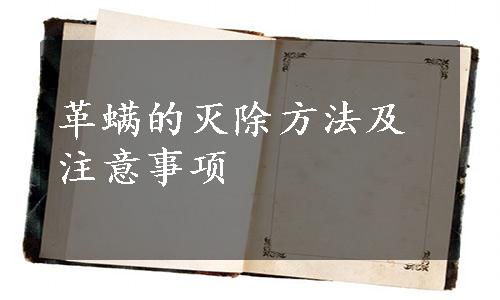 革螨的灭除方法及
注意事项